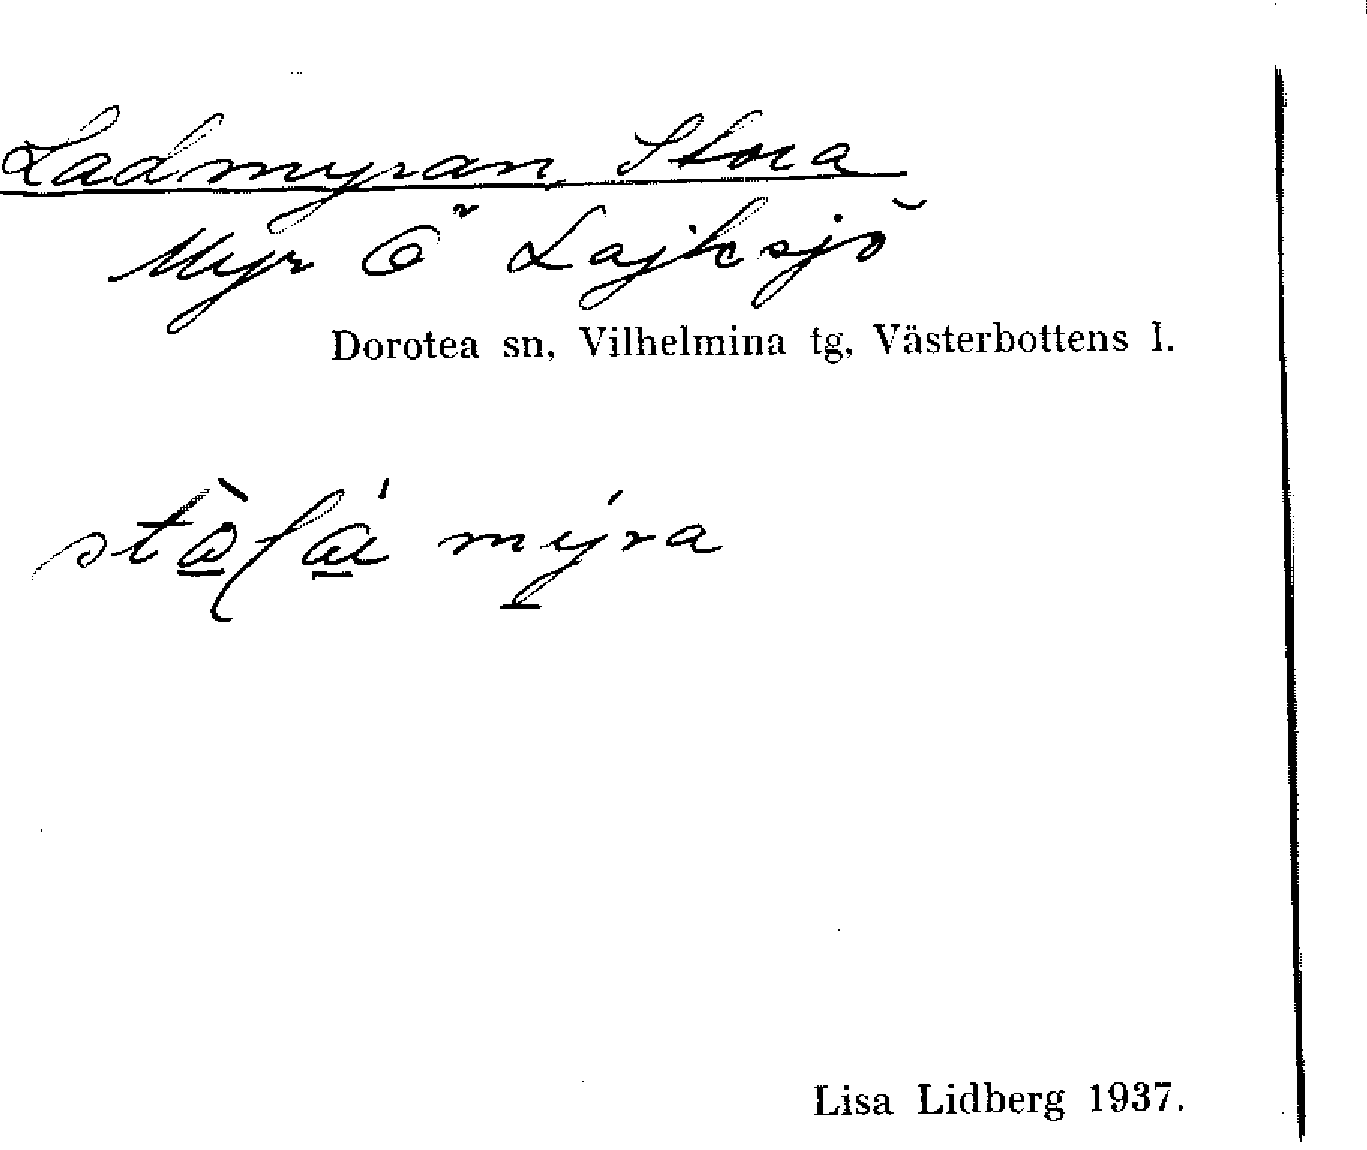 Ladmyran, Stora
Myr Ö Lajksjö
Dorotea sn, Vilhelmina tg, Västerbottens l.
myra
Lisa Lidberg 1937.